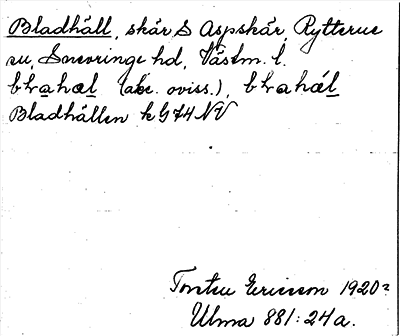 Bladhäll, skär S Aspskär, Rytterne
sn, Snevringe hd, Västm. l.
bḷrahæl (akc. oviss.), bḷrahǽl
Bladhällen k G74 NV
Torsten Ericsson 1920?
Ulma 881:24a.